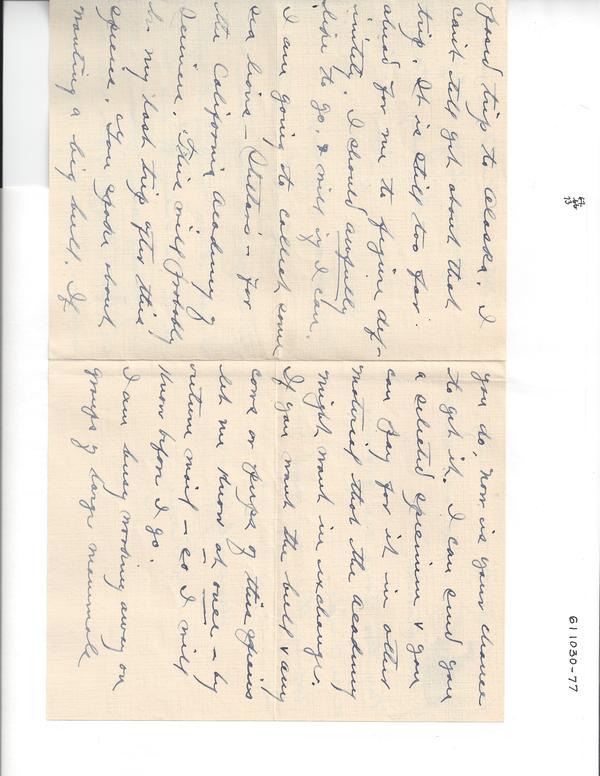 good trip to Alaska. I
can't tell yet about that
trip. It is still too far
ahead for me to figure def-
initely. I should awfully
like to go, & will if I can.
I am going to collect some
sea lions - Stellar's - for
the California Academy of
Sciences. This will probably
be my last trip after this
species. You spoke about
wanting a big bull. If
you do, now is your chance
to get it. I can send you
a selected specimen & you
can pay for it in other
material that the Academy
might want in exchange.
If you want the bull & any
cows or pups of this species
let me know at once - by
return mail - so I will
know before I go.
I am busy working away on
groups of large mammals
611030-77